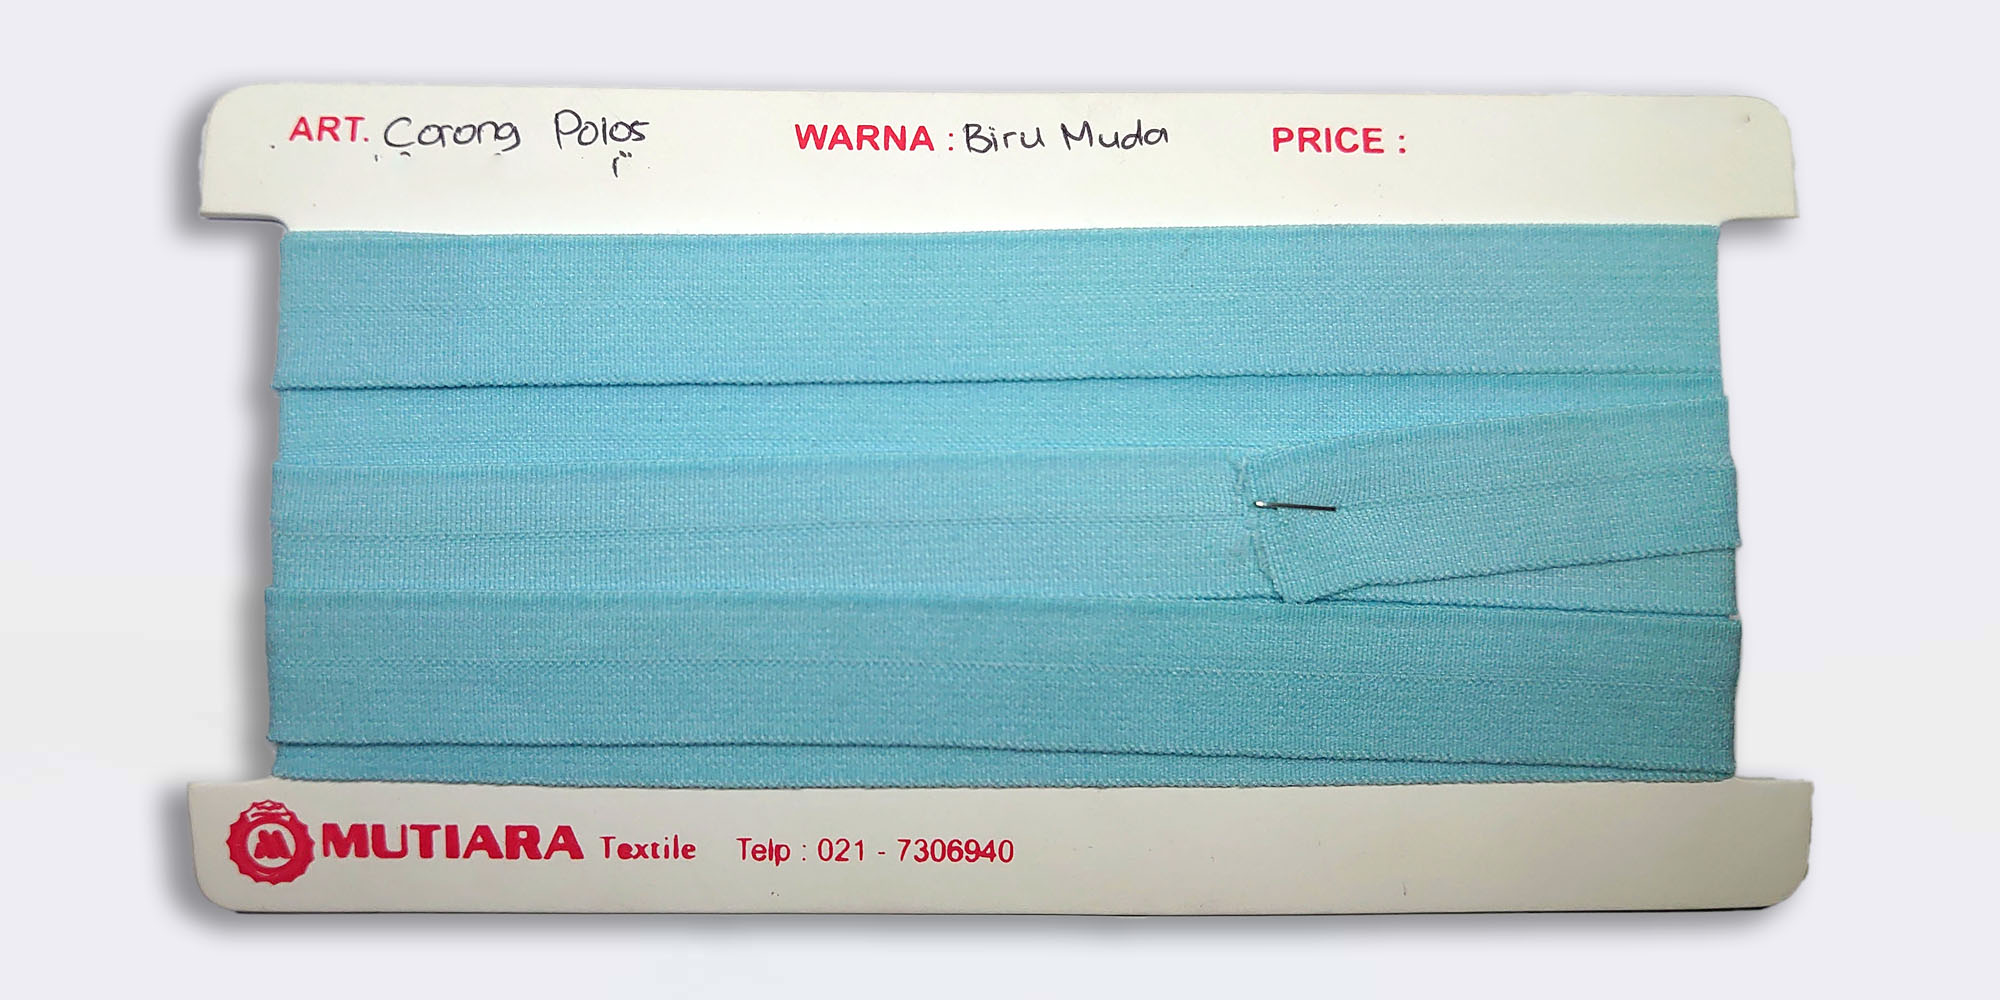 ART. Corong Polos WARNA : Biru Muda PRICE :
M MUTIARA Textile Telp : 021 - 7306940